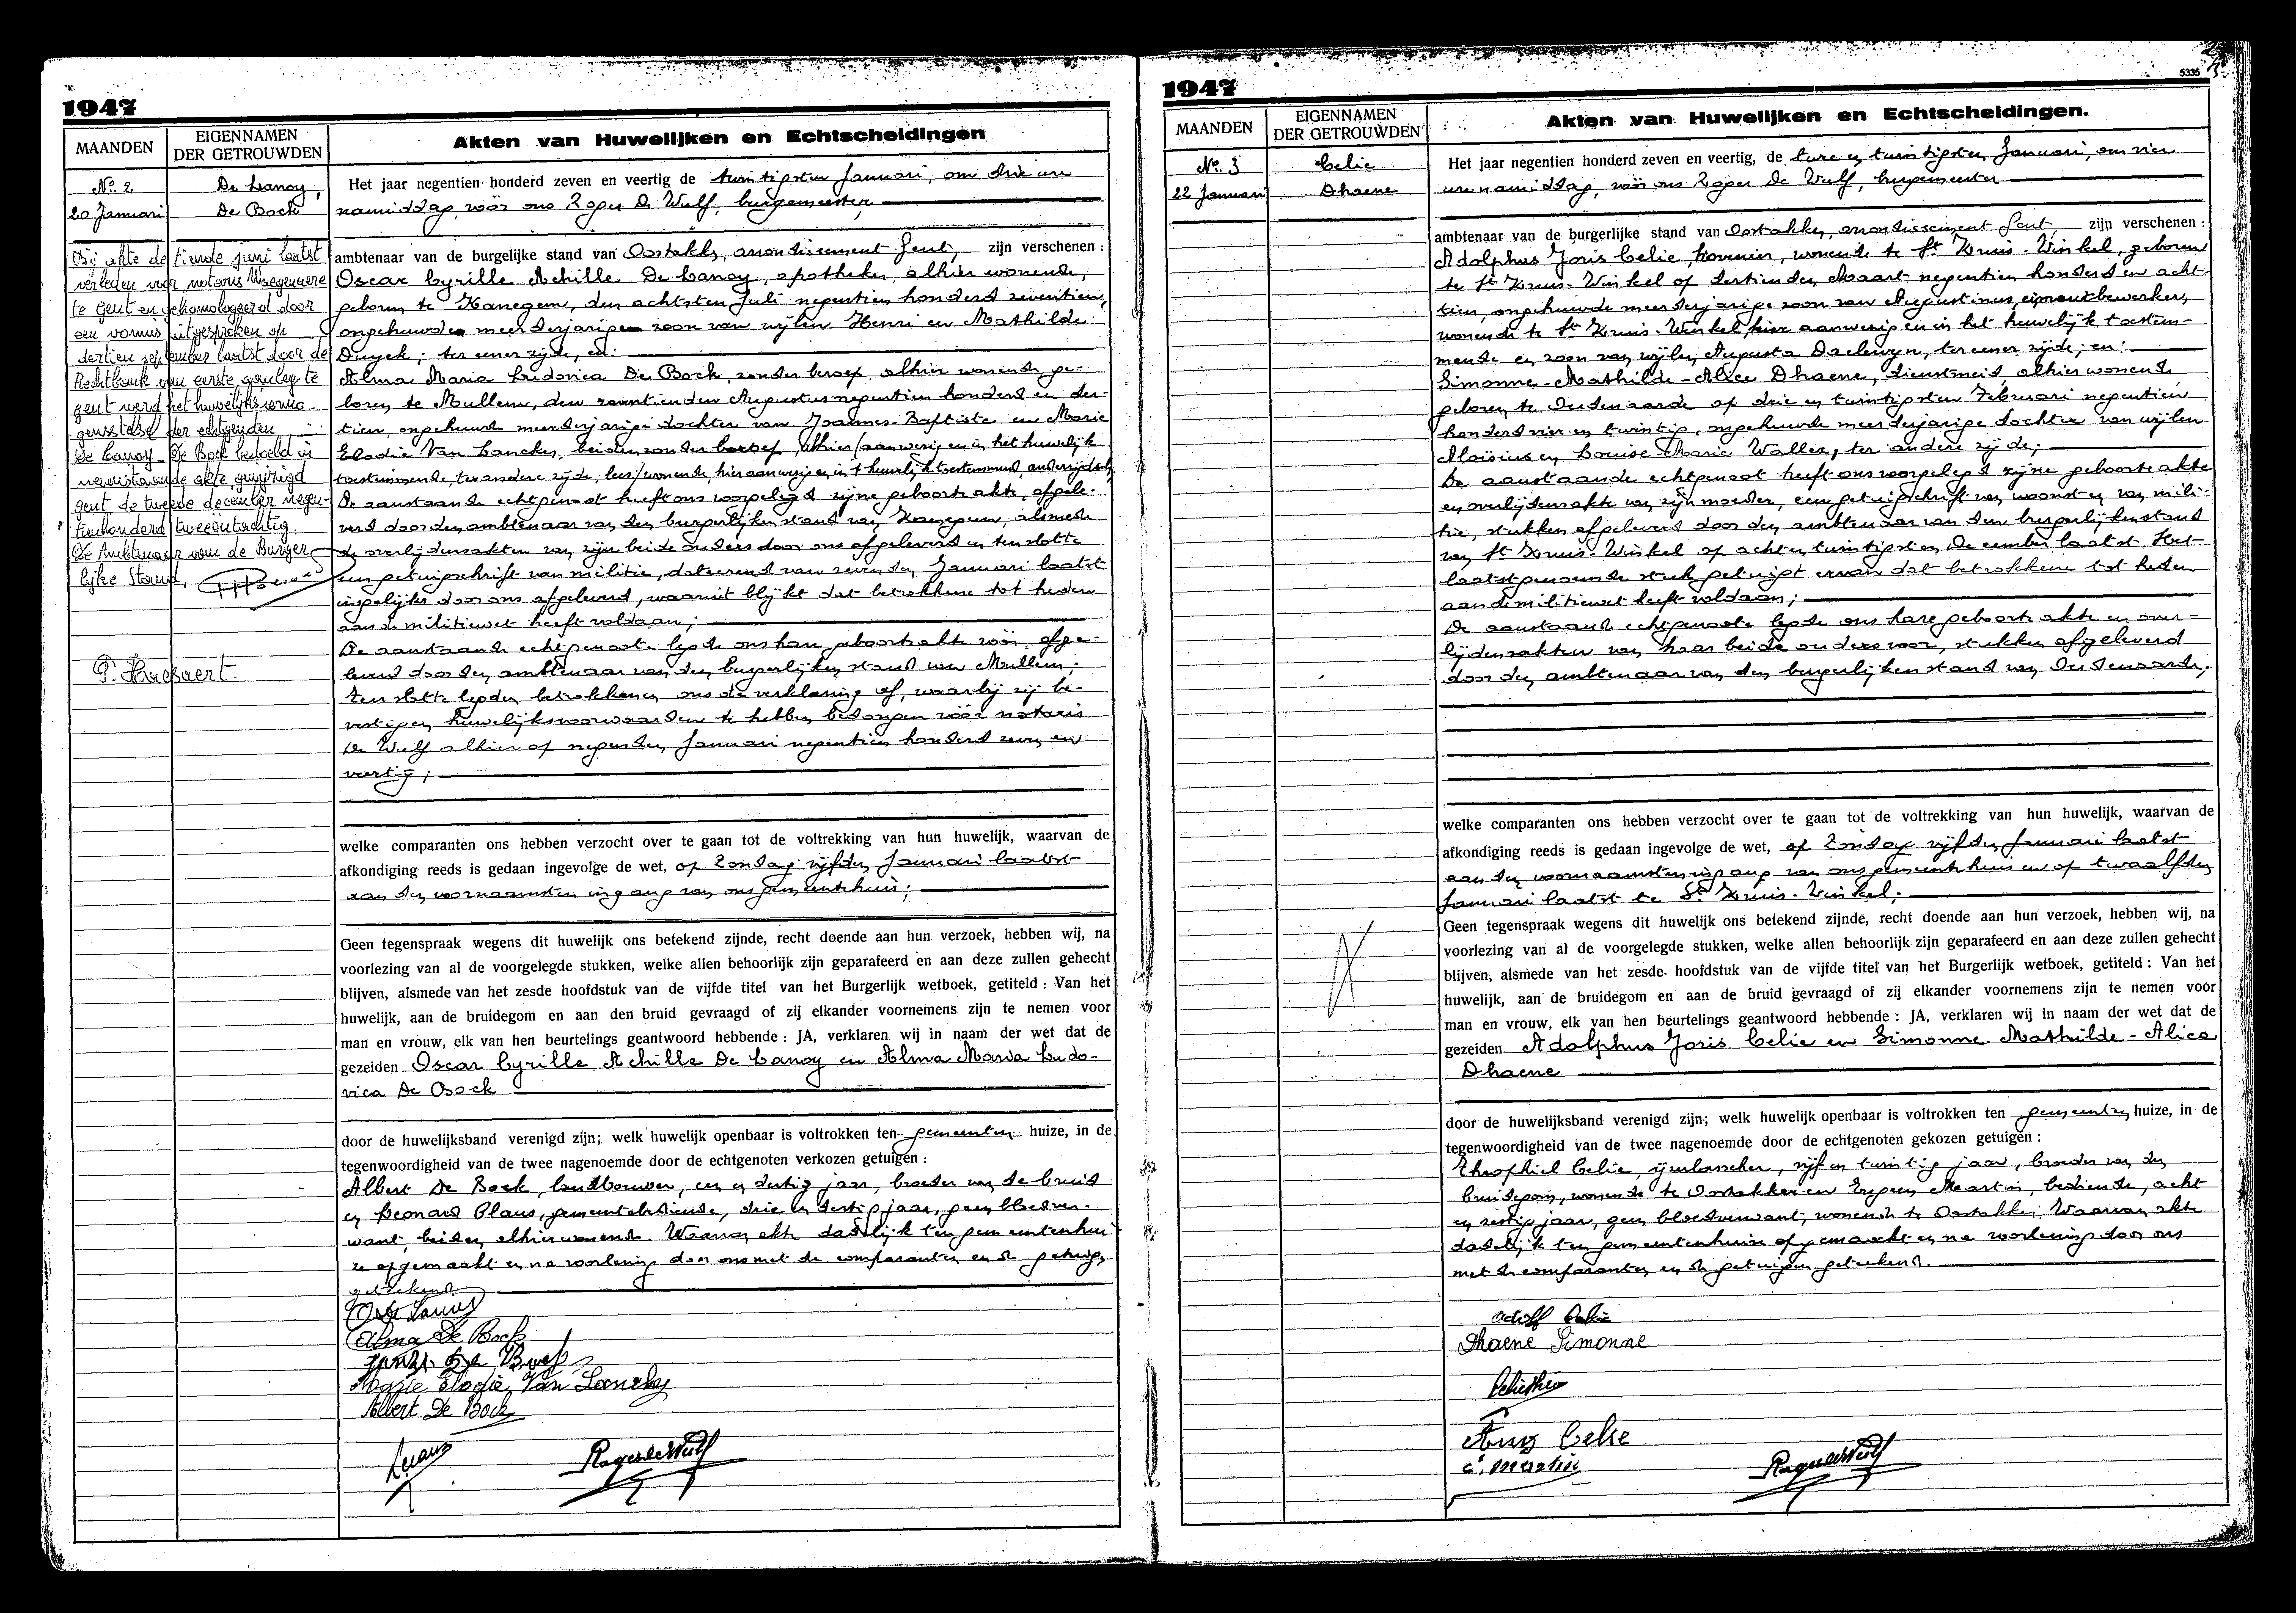 1947
MAANDEN
EIGENNAMEN
DER GETROUWDEN
Akten van Huwelijken en Echtscheidingen
No. 2
De Lanoy,
20 Januari
De Bock
Bij akte de tiende juni laatst
verleden voor notaris
te Gent en gehomologeerd door
een vonnis uitgesproken op
dertien september laatst door de
Rechtbank van eerste aanleg te
Gent werd het huwelijksvermo-
gensstelsel der echtgenoten
De Lanoy - De Bock bedoeld in
nevenstaande akte gewijzigd
Gent de tweede december negen-
tienhonderd tweeëntachtig.
De Ambtenaar van de Burger-
lijke Stand,
P. Haesaert.
Het jaar negentien honderd zeven en veertig de twintigsten Januari, om drie ure
namiddag, vóór ons Roger De Wulf, burgemeester,
ambtenaar van de burgelijke stand van Oostakker, arrondissement Gent, zijn verschenen :
Oscar Cyrille Achille De Lanoy, apotheker, alhier wonende,
geboren te Kanegem, den achtsten Juli negentien honderd zeventien,
ongehuwde meerderjarige zoon van wijlen Henri en Mathilde
Duyck; ter eener zijde, en:
Alma Maria Ludovica De Bock, zonder beroep, alhier wonende, ge-
boren te Mullem, den zeventienden Augustus negentien honderd en der-
tien, ongehuwde meerderjarige dochter van Joannes-Baptiste en Marie
Elodie Van Lancker, beiden zonder beroep, alhier (aanwezig en in het huwelijk
toestemmende, ter andere zijde; lees:/ wonende, hier aanwezig en in 't huwelijk toestemmend, anderzijds
De aanstaande echtgenoot heeft ons voorgelegd zijne geboorteakte, afgele-
verd door den ambtenaar van den burgerlijken stand van Kanegem, alsmede
de overlijdensakten van zijn beide ouders door ons afgeleverd en ten slotte
een getuigschrift van militie, daterend van zevenden Januari laatst
insgelijks door ons afgeleverd, waaruit blijkt dat betrokkene tot heden
aan de militiewet heeft voldaan;
De aanstaande echtgenoote legde ons hare geboorteakte vóór, afge-
leverd door den ambtenaar van den burgerlijken stand van Mullem;
Ten slotte legden betrokkenen ons de verklaring af, waarbij zij be-
vestigen huwelijksvoorwaarden te hebben bedongen vóór notaris
De Wulf alhier op negenden Januari negentien honderd zeven en
veertig;
welke comparanten ons hebben verzocht over te gaan tot de voltrekking van hun huwelijk, waarvan de
afkondiging reeds is gedaan ingevolge de wet, op Zondag vijfden Januari laatst
aan den voornaamsten ingang van ons gemeentehuis;
Geen tegenspraak wegens dit huwelijk ons betekend zijnde, recht doende aan hun verzoek, hebben wij, na
voorlezing van al de voorgelegde stukken, welke allen behoorlijk zijn geparafeerd en aan deze zullen gehecht
blijven, alsmede van het zesde hoofdstuk van de vijfde titel van het Burgerlijk wetboek, getiteld : Van het
huwelijk, aan de bruidegom en aan den bruid gevraagd of zij elkander voornemens zijn te nemen voor
man en vrouw, elk van hen beurtelings geantwoord hebbende : JA, verklaren wij in naam der wet dat de
gezeiden Oscar Cyrille Achille De Lanoy en Alma Maria Ludo-
vica De Bock
door de huwelijksband verenigd zijn; welk huwelijk openbaar is voltrokken ten gemeenten huize, in de
tegenwoordigheid van de twee nagenoemde door de echtgenoten verkozen getuigen :
Albert De Bock, landbouwer, een en dertig jaar, broeder van de bruid
en Leonard Claus, gemeentebediende, drie en dertig jaar, geen bloedver-
want, beiden alhier wonende. Waarvan akte dadelijk ten gemeentenhui
ze opgemaakt en na voorlezing door ons met de comparanten en de getuigen
geteekend
Alma De Bock
Marie Elodie Van Lancker
Albert De Bock
Roger de Wulf
1947
5335
MAANDEN
EIGENNAMEN
DER GETROUWDEN
Akten van Huwelijken en Echtscheidingen.
No. 3
Celie
22 Januari
Dhaene
Het jaar negentien honderd zeven en veertig, de twee en twintigsten Januari, om vier
ure namiddag, vóór ons Roger De Wulf, burgemeester
ambtenaar van de burgerlijke stand van Oostakker, arrondissement Gent, zijn verschenen :
Adolphus Joris Celie, hovenier, wonende te St Kruis-Winkel, geboren
te St Kruis-Winkel op dertienden Maart negentien honderd en acht-
tien, ongehuwde meerderjarige zoon van Augustinus, cimentbewerker,
wonende te St Kruis-Winkel, hier aanwezig en in het huwelijk toestem-
mende en zoon van wijlen Augusta Daelewyn, ter eener zijde; en:
Simonne-Mathilde-Alice Dhaene, dienstmeid, alhier wonende,
geboren te Oudenaarde op drie en twintigsten Februari negentien
honderd vier en twintig, ongehuwde meerderjarige dochter van wijlen
Aloïsius en Louise Marie Wallez, ter andere zijde;
De aanstaande echtgenoot heeft ons voorgelegd zijne geboorteakte
en overlijdensakte van zijn moeder, een getuigschrift van woonst en van mili-
tie, stukken afgeleverd door den ambtenaar van den burgerlijken stand
van St Kruis-Winkel op acht en twintigsten December laatst. Het
laatstgenoemde stuk getuigt ervan dat betrokkene tot heden
aan de militiewet heeft voldaan;
De aanstaande echtgenoote legde ons hare geboorteakte en over-
lijdensakten van haar beide ouders voor, stukken afgeleverd
door den ambtenaar van den burgerlijken stand van Oudenaarde;
welke comparanten ons hebben verzocht over te gaan tot de voltrekking van hun huwelijk, waarvan de
afkondiging reeds is gedaan ingevolge de wet, op Zondag vijfden Januari laatst
aan den voornaamsten ingang van ons gemeentehuis en op twaalfden
Januari laatst te St Kruis-Winkel;
Geen tegenspraak wegens dit huwelijk ons betekend zijnde, recht doende aan hun verzoek, hebben wij, na
voorlezing van al de voorgelegde stukken, welke allen behoorlijk zijn geparafeerd en aan deze zullen gehecht
blijven, alsmede van het zesde hoofdstuk van de vijfde titel van het Burgerlijk wetboek, getiteld : Van het
huwelijk, aan de bruidegom en aan de bruid gevraagd of zij elkander voornemens zijn te nemen voor
man en vrouw, elk van hen beurtelings geantwoord hebbende : JA, verklaren wij in naam der wet dat de
gezeiden Adolphus Joris Celie en Simonne-Mathilde-Alice
Dhaene
door de huwelijksband verenigd zijn; welk huwelijk openbaar is voltrokken ten gemeenten huize, in de
tegenwoordigheid van de twee nagenoemde door de echtgenoten gekozen getuigen :
Theophiel Celie, ijzerlasscher, vijf en twintig jaar, broeder van den
bruidegom, wonende te Oostakker en Eugeen Maartin, bediende, acht
en zestig jaar, geen bloedverwant, wonende te Oostakker. Waarvan akte
dadelijk ten gemeentenhuize opgemaakt en na voorlezing door ons
met de comparanten en de getuigen geteekend.
Adolf Celie
Dhaene Simonne
Celie Theo
Aug Celie
Roger de Wulf